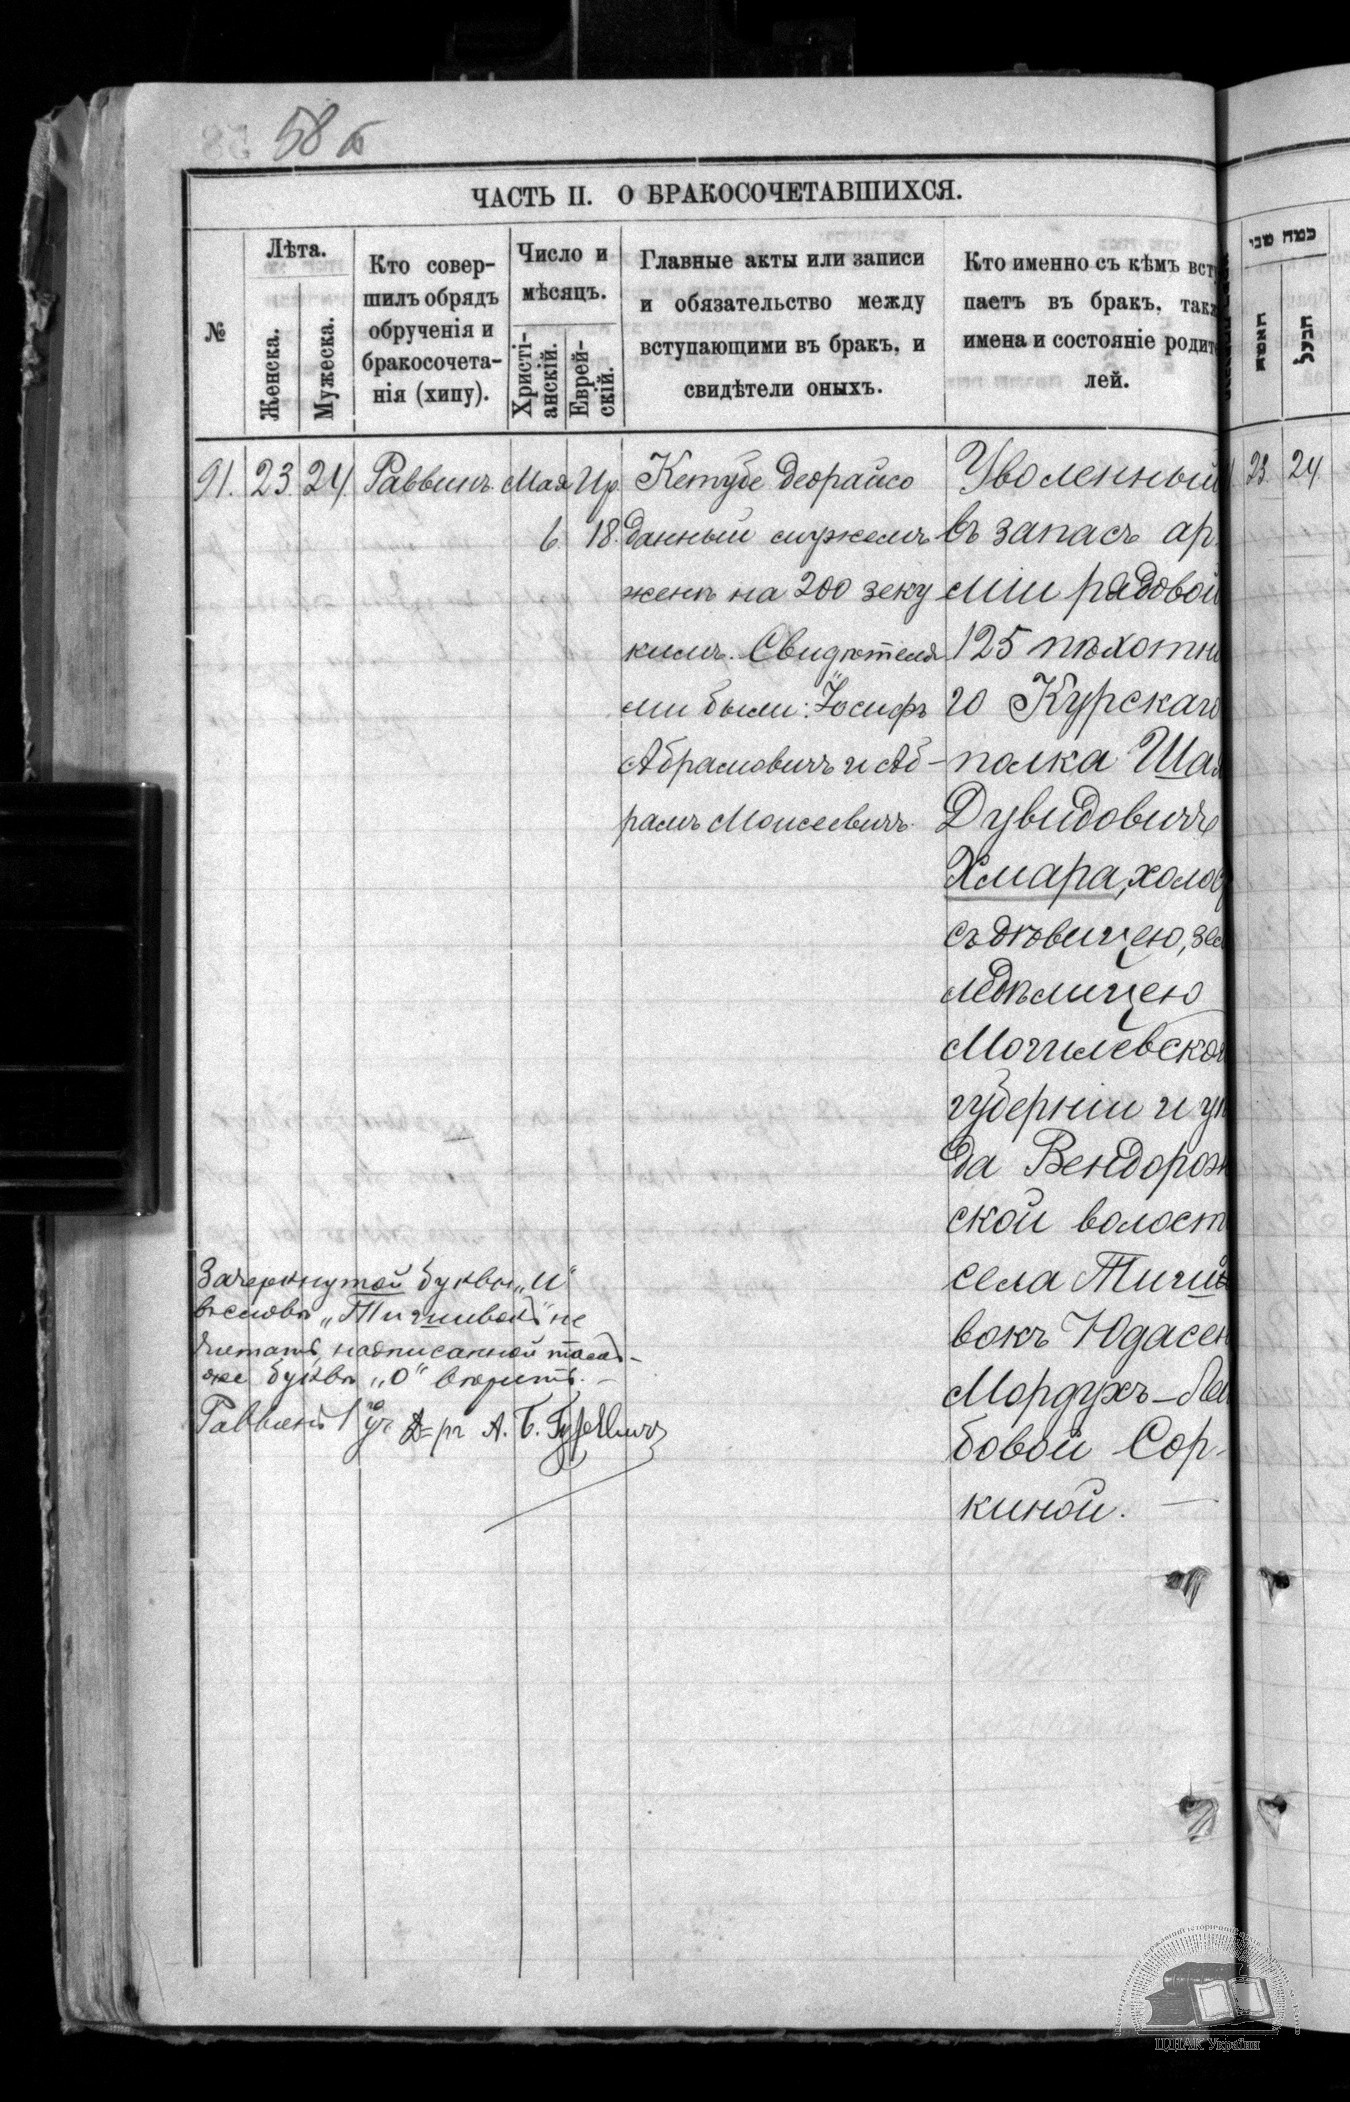 58 б
ЧАСТЬ II. О БРАКОСОЧЕТАВШИХСЯ.
№
Лѣта.
Женска.
Мужеска.
Кто совер-
шилъ обрядъ
обрученія и
бракосочета-
нія (хипу).
Число и
мѣсяцъ.
Христі-
анскій.
Еврей-
скій.
Главные акты или записи
и обязательство между
вступающими въ бракъ, и
свидѣтели оныхъ.
Кто именно съ кѣмъ всту
паетъ въ бракъ, такж
имена и состояніе родите
лей.
כמה שני
האשה
הבעל
91. 23. 24. Раввинъ. Мая Ир.
6. 18.
Кетубе деорайсо
данный мужемъ
женѣ на 200 зеку
кимъ. Свидѣтеля
ми были: Іосифъ
Абрамовичъ и Аб-
рамъ Моисеевичъ.
Уволенный
въ запасъ ар
міи рядовой
125 пѣхотна
го Курскаго
полка Шая
Дувидовичъ
Хмара, холос
съ дѣвицею, зем
ледѣлицею
Могилевской
губерніи и уѣ
да Вендорож
ской волост
села Тиши
вокъ Юдасен
Мордухъ-Лей
бовой Сор-
киной.
23. 24.
Зачеркнутой буквы „и“
въ словѣ не
читать, надписанной
же буквѣ „о“ вѣрить.
Раввинъ А. Б.
ЦДІАК України